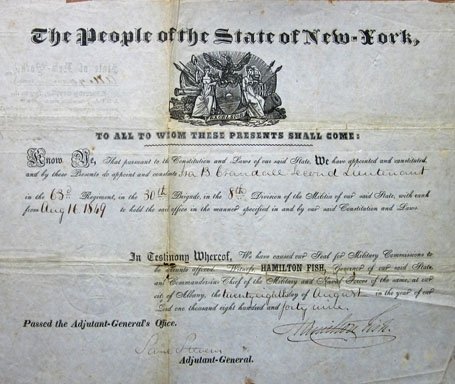 The People of the State of New-York,
EXCELSIOR
TO ALL TO WHOM THESE PRESENTS SHALL COME:
Know Ye, That pursuant to the Constitution and Laws of our said State, We have appointed and constituted,
and by these Presents do appoint and constitute Ira B Crandall Second Lieutenant
in the 63d Regiment, in the 30th Brigade, in the 8th Division of the Militia of our said State, with rank
from Aug 16 1849 to hold the said office in the manner specified in and by our said Constitution and Laws.
In Testimony Whereof, We have caused our Seal for Military Commissions to
be hereunto affixed. Witness HAMILTON FISH, Governor of our said State,
and Commander-in-Chief of the Military and Naval Forces of the same, at our
city of Albany, the twenty eighth day of August in the year of our
Lord one thousand eight hundred and forty nine
Hamilton Fish
Passed the Adjutant-General's Office.
Saml Stevens
Adjutant-General.